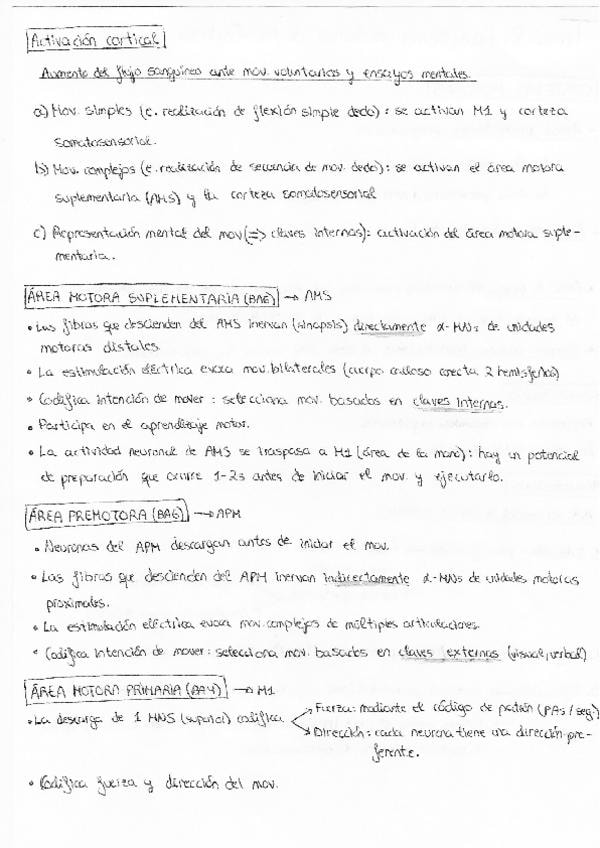 Activación cortical
Aumento del flujo sanguíneo ante mov. voluntarios y ensayos mentales.
a) Mov. simples (e. realización de flexión simple dedo): se activan M1 y corteza
somatosensorial.
b) Mov. complejos (e. realización de secuencia de mov. dedo): se activan el área motora
suplementaria (AMS) y la corteza somatosensorial
c) Representación mental del mov (=> claves internas): activación del área motora suple-
mentaria.
ÁREA MOTORA SUPLEMENTARIA (BA6) → AMS
• Las fibras que descienden del AMS inervan (sinapsis) directamente α-MNs de unidades
motoras distales.
• La estimulación eléctrica evoca mov. bilaterales (cuerpo calloso conecta 2 hemisferios)
• Codifica intención de mover: selecciona mov. basados en claves internas.
• Participa en el aprendizaje motor.
• La actividad neuronal de AMS se traspasa a M1 (área de la mano): hay un potencial
de preparación que ocurre 1-2s antes de iniciar el mov. y ejecutarlo.
ÁREA PREMOTORA (BA6) → APM
• Neuronas del APM descargan antes de iniciar el mov.
• Las fibras que descienden del APM inervan indirectamente α-MNs de unidades motoras
proximales.
• La estimulación eléctrica evoca mov. complejos de múltiples articulaciones.
• Codifica intención de mover: selecciona mov. basados en claves externas (visual, verbal)
ÁREA MOTORA PRIMARIA (BA4) → M1
• La descarga de 1 MNS (superior) codifica
Fuerza: mediante el código de patrón (PAs / seg.)
Dirección: cada neurona tiene una dirección pre-
ferente.
• Codifica fuerza y dirección del mov.